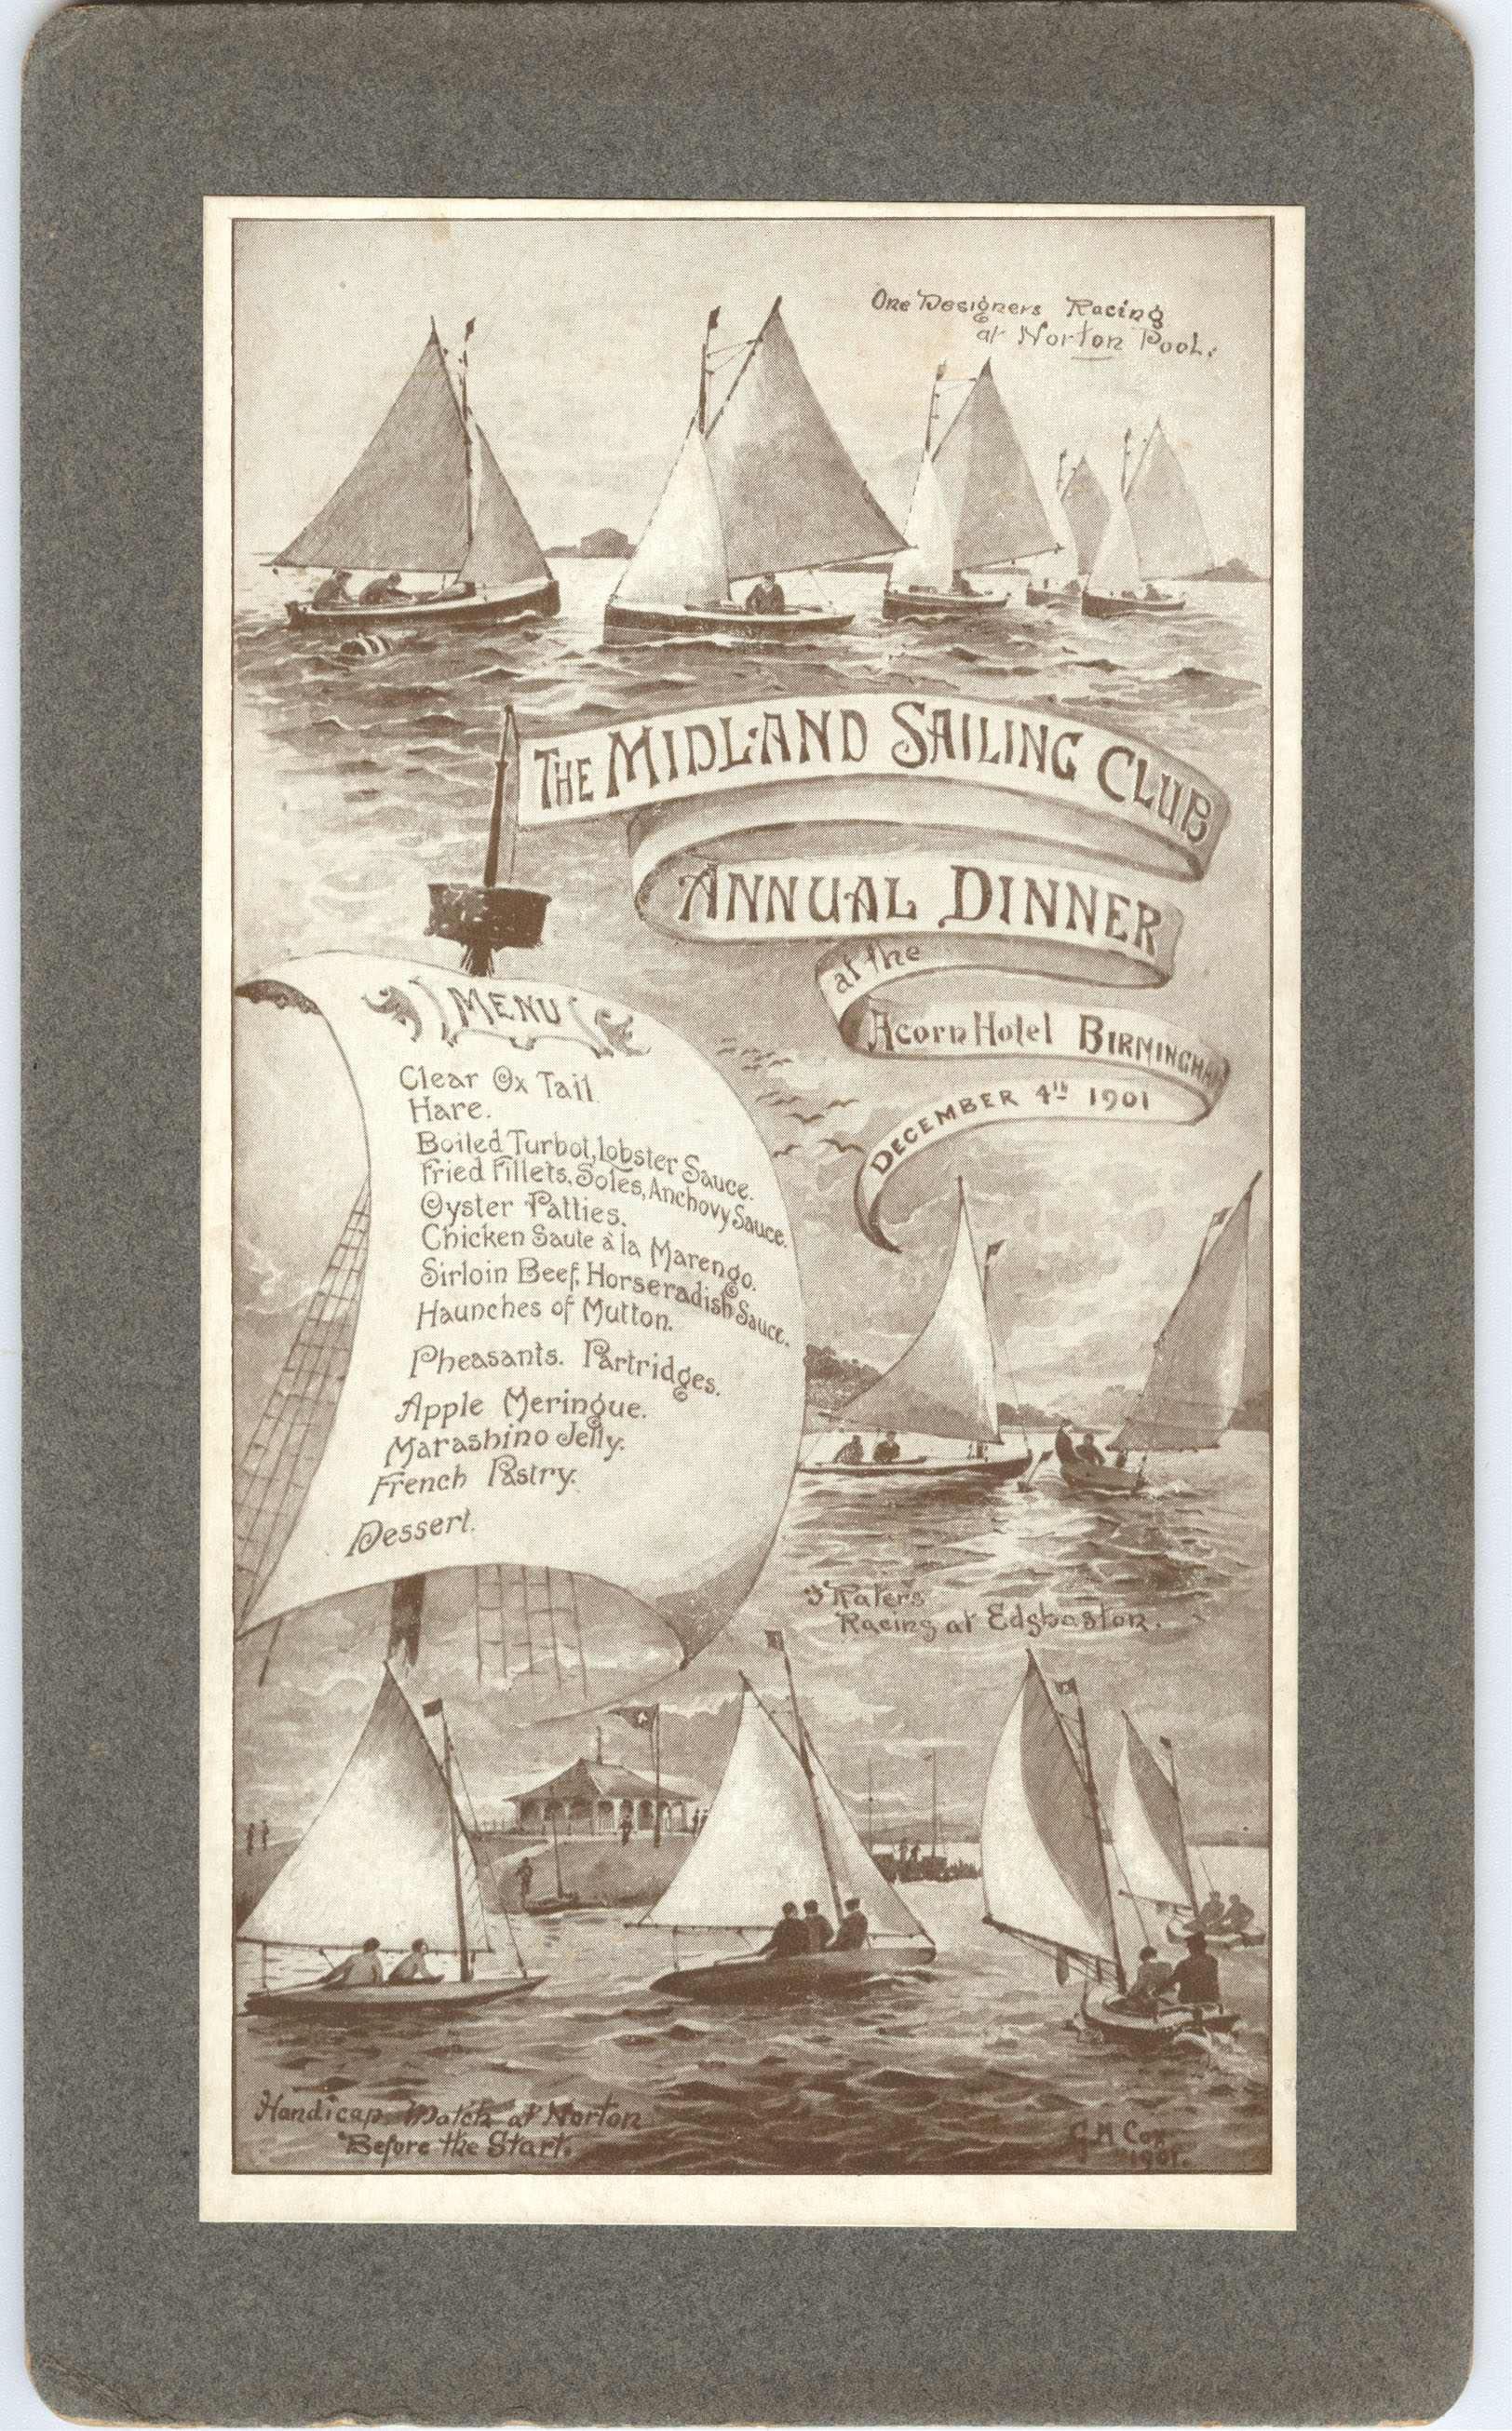 One Designers Racing
at Norton Pool.
THE MIDLAND SAILING CLUB
ANNUAL DINNER
at the
Acorn Hotel BIRMINGHAM
DECEMBER 4th 1901
MENU
Clear Ox Tail.
Hare.
Boiled Turbot, lobster Sauce.
Fried Fillets, Soles, Anchovy Sauce.
Oyster Patties.
Chicken Saute à la Marengo.
Sirloin Beef, Horseradish Sauce.
Haunches of Mutton.
Pheasants. Partridges.
Apple Meringue.
Marashino Jelly.
French Pastry.
Dessert.
Raters
Racing at Edgbaston.
Handicap Match at Norton
Before the Start.
G M Cox
1901.